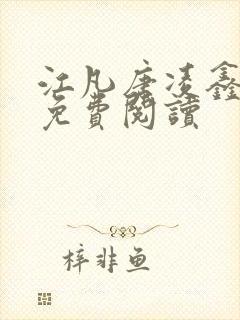 江凡唐凌鑫
免費閱讀
梓非鱼